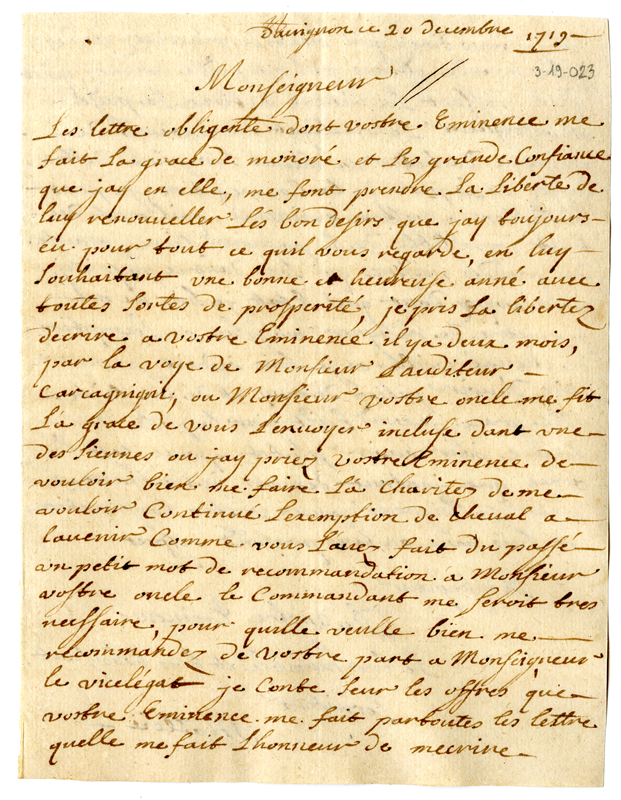 D'avignon ce 20 decembre 1719
3-19-023
Monseigneur
Les lettre obligente dont vostre Eminence me
fait la grace de monoré et Les grande Confiance
que jay en elle, me font prendre La Liberte de
luy renouveller Les bon desirs que jay toujours
eu pour tout ce quil vous regarde, en luy
souhaitant une bonne et heureuse anné avec
toutes sortes de prosperité, je pris La libertez
d'ecrire a vostre Eminence il ya deux mois,
par la voye de Monsieur L'auditeur
ou Monsieur vostre oncle me fit
La grace de vous L'envoyer incluse dant une
des siennes ou jay priez vostre Eminence de
vouloir bien me faire La Charitez de me
vouloir Continué L'exemption de cheval a
lavenir Comme vous L'avez fait du passé
un petit mot de recommandation à Monsieur
vostre oncle le Commandant me seroit tres
necssaire, pour quille veulle bien me
recommandez de vostre part a Monseigneur
le vicelégat je Conte seur les offres que
vostre Eminence me fait partoutes les lettre
quelle me fait L'honneur de mecrire